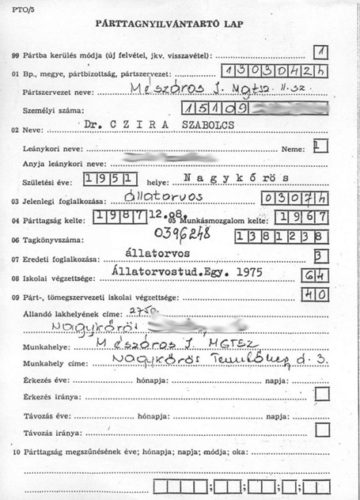 PTO/5
PÁRTTAGNYILVÁNTARTÓ LAP
00 Pártba kerülés módja (új felvétel, jkv. visszavétel): 1
01 Bp., megye, pártbizottság, pártszervezet: 1303042h
Pártszervezet neve: Mészáros J. Mgtsz. II. sz.
Személyi száma: 15109
02 Neve: Dr. CZIRA SZABOLCS
Leánykori neve: Neme: 1
Anyja leánykori neve:
Születési éve: 1951 helye: Nagykőrös
03 Jelenlegi foglalkozása: állatorvos 0307h
04 Párttagság kelte: 1987 12.08. 05 Munkásmozgalom kelte: 1967
06 Tagkönyvszáma: 0396248 1381238
07 Eredeti foglalkozása: állatorvos 3
08 Iskolai végzettsége: Állatorvostud.Egy. 1975 64
09 Párt-, tömegszervezeti iskolai végzettsége: 40
Állandó lakhelyének címe: 2750.
Nagykőrös
Munkahelye: Mészáros J. MGTSZ
Munkahely címe: Nagykőrös d. 3.
Érkezés éve: hónapja: napja:
Érkezés iránya:
Távozás éve: hónapja: napja:
Távozás iránya:
10 Párttagság megszűnésének éve; hónapja; napja; módja; oka: